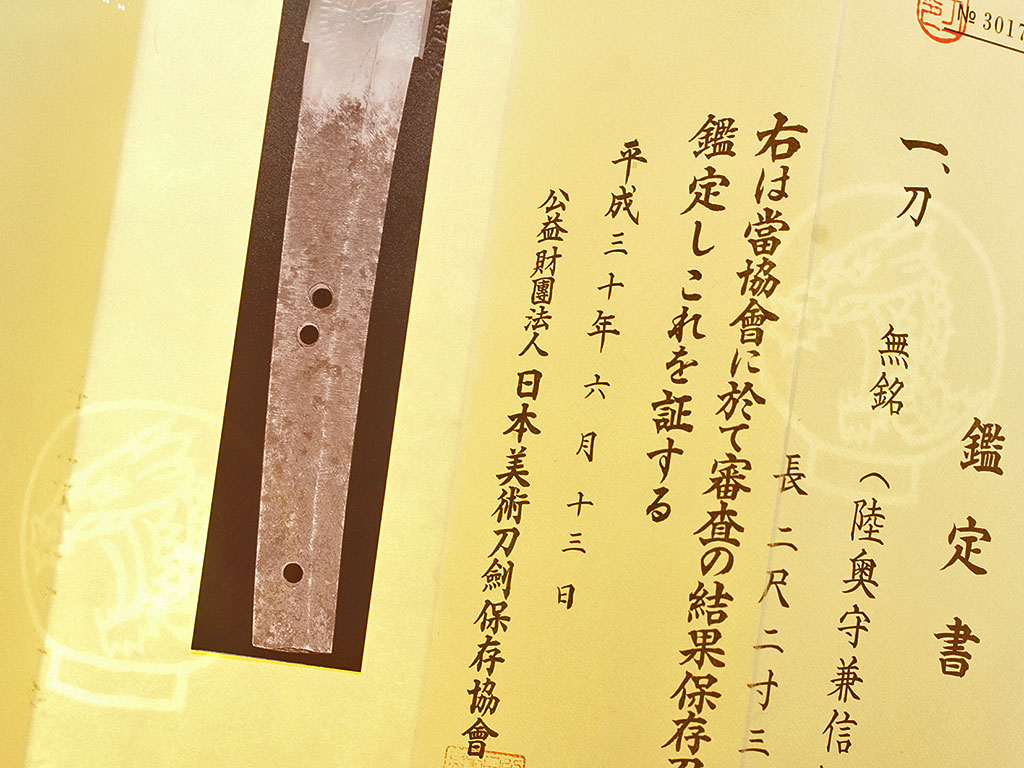 № 3017
鑑定書
一、刀　無銘（陸奥守兼信
長 二尺二寸三
右は當協會に於て審査の結果保存刀
鑑定しこれを証する
平成三十年六月十三日
公益財團法人 日本美術刀劍保存協會